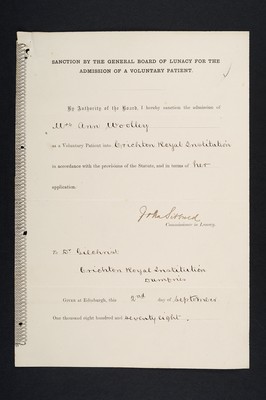 SANCTION BY THE GENERAL BOARD OF LUNACY FOR THE
ADMISSION OF A VOLUNTARY PATIENT.
By Authority of the Board, I hereby sanction the admission of
Mrs Ann Woolley
as a Voluntary Patient into Crichton Royal Institution
in accordance with the provision of the Statute, and in terms of her
application.
John Sibbald
Commissioner in Lunacy.
To Dr Gilchrist
Crichton Royal Institution
Dumfries
Given at Edinburgh, this 2nd day of September
One thousand eight hundred and seventy eight.